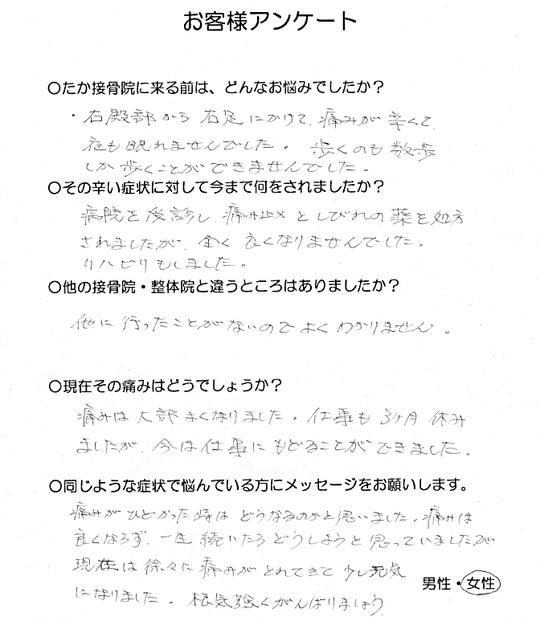 お客様アンケート
○たか接骨院に来る前は、どんなお悩みでしたか?
・右殿部から右足にかけて、痛みが辛くて、
夜も眠れませんでした。歩くのも数歩
しか歩くことができませんでした。
○その辛い症状に対して今まで何をされましたか?
病院を受診し、痛み止めとしびれの薬を処方
されましたが、全く良くなりませんでした。
リハビリもしました。
○他の接骨院・整体院と違うところはありましたか?
他に行ったことがないのでよくわかりません。
○現在その痛みはどうでしょうか?
痛みは大部よくなりました。仕事も3ヶ月休み
ましたが、今は仕事にもどることができました。
○同じような症状で悩んでいる方にメッセージをお願いします。
痛みがひどかった時はどうなるのかと思いました。痛みは
良くならず、一生続いたらどうしようと思っていましたが
現在は徐々に痛みがとれてきて少し元気
になりました。根気強くがんばりましょう
男性・女性